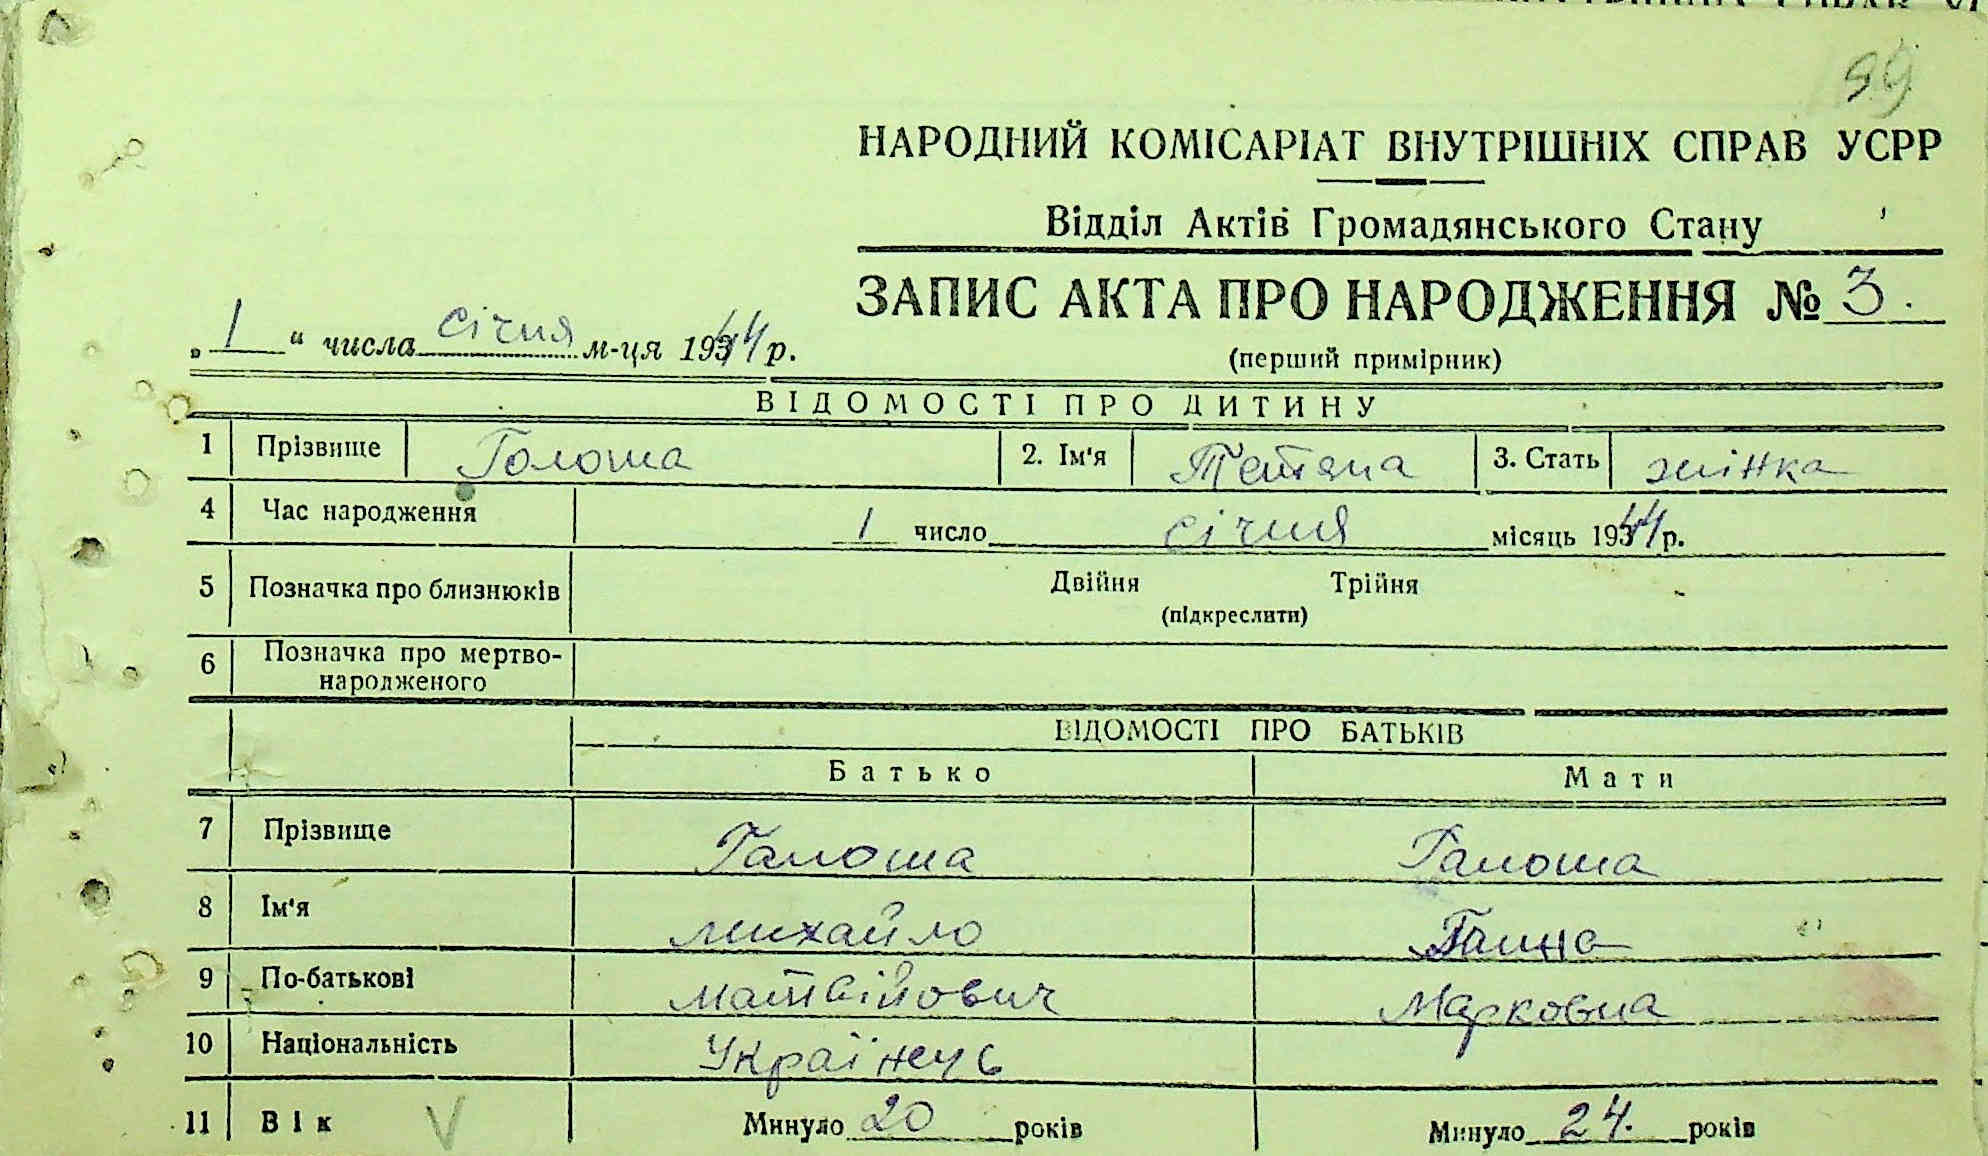 99
НАРОДНИЙ КОМІСАРІАТ ВНУТРІШНІХ СПРАВ УСРР
Відділ Актів Громадянського Стану
ЗАПИС АКТА ПРО НАРОДЖЕННЯ № 3.
„ 1 “ числа січня м-ця 1944 р.
(перший примірник)
ВІДОМОСТІ ПРО ДИТИНУ
1 Прізвище Голоша 2. Ім'я Тетяна 3. Стать жінка
4 Час народження 1 число січня місяць 1944 р.
5 Позначка про близнюків Двійня Трійня
(підкреслити)
6 Позначка про мертво-
народженого
ВІДОМОСТІ ПРО БАТЬКІВ
Батько Мати
7 Прізвище Галоша Галоша
8 Ім'я Михайло Ганна
9 По-батькові Матвійович Марковна
10 Національність Українець
11 Вік Минуло 20 років Минуло 24. років